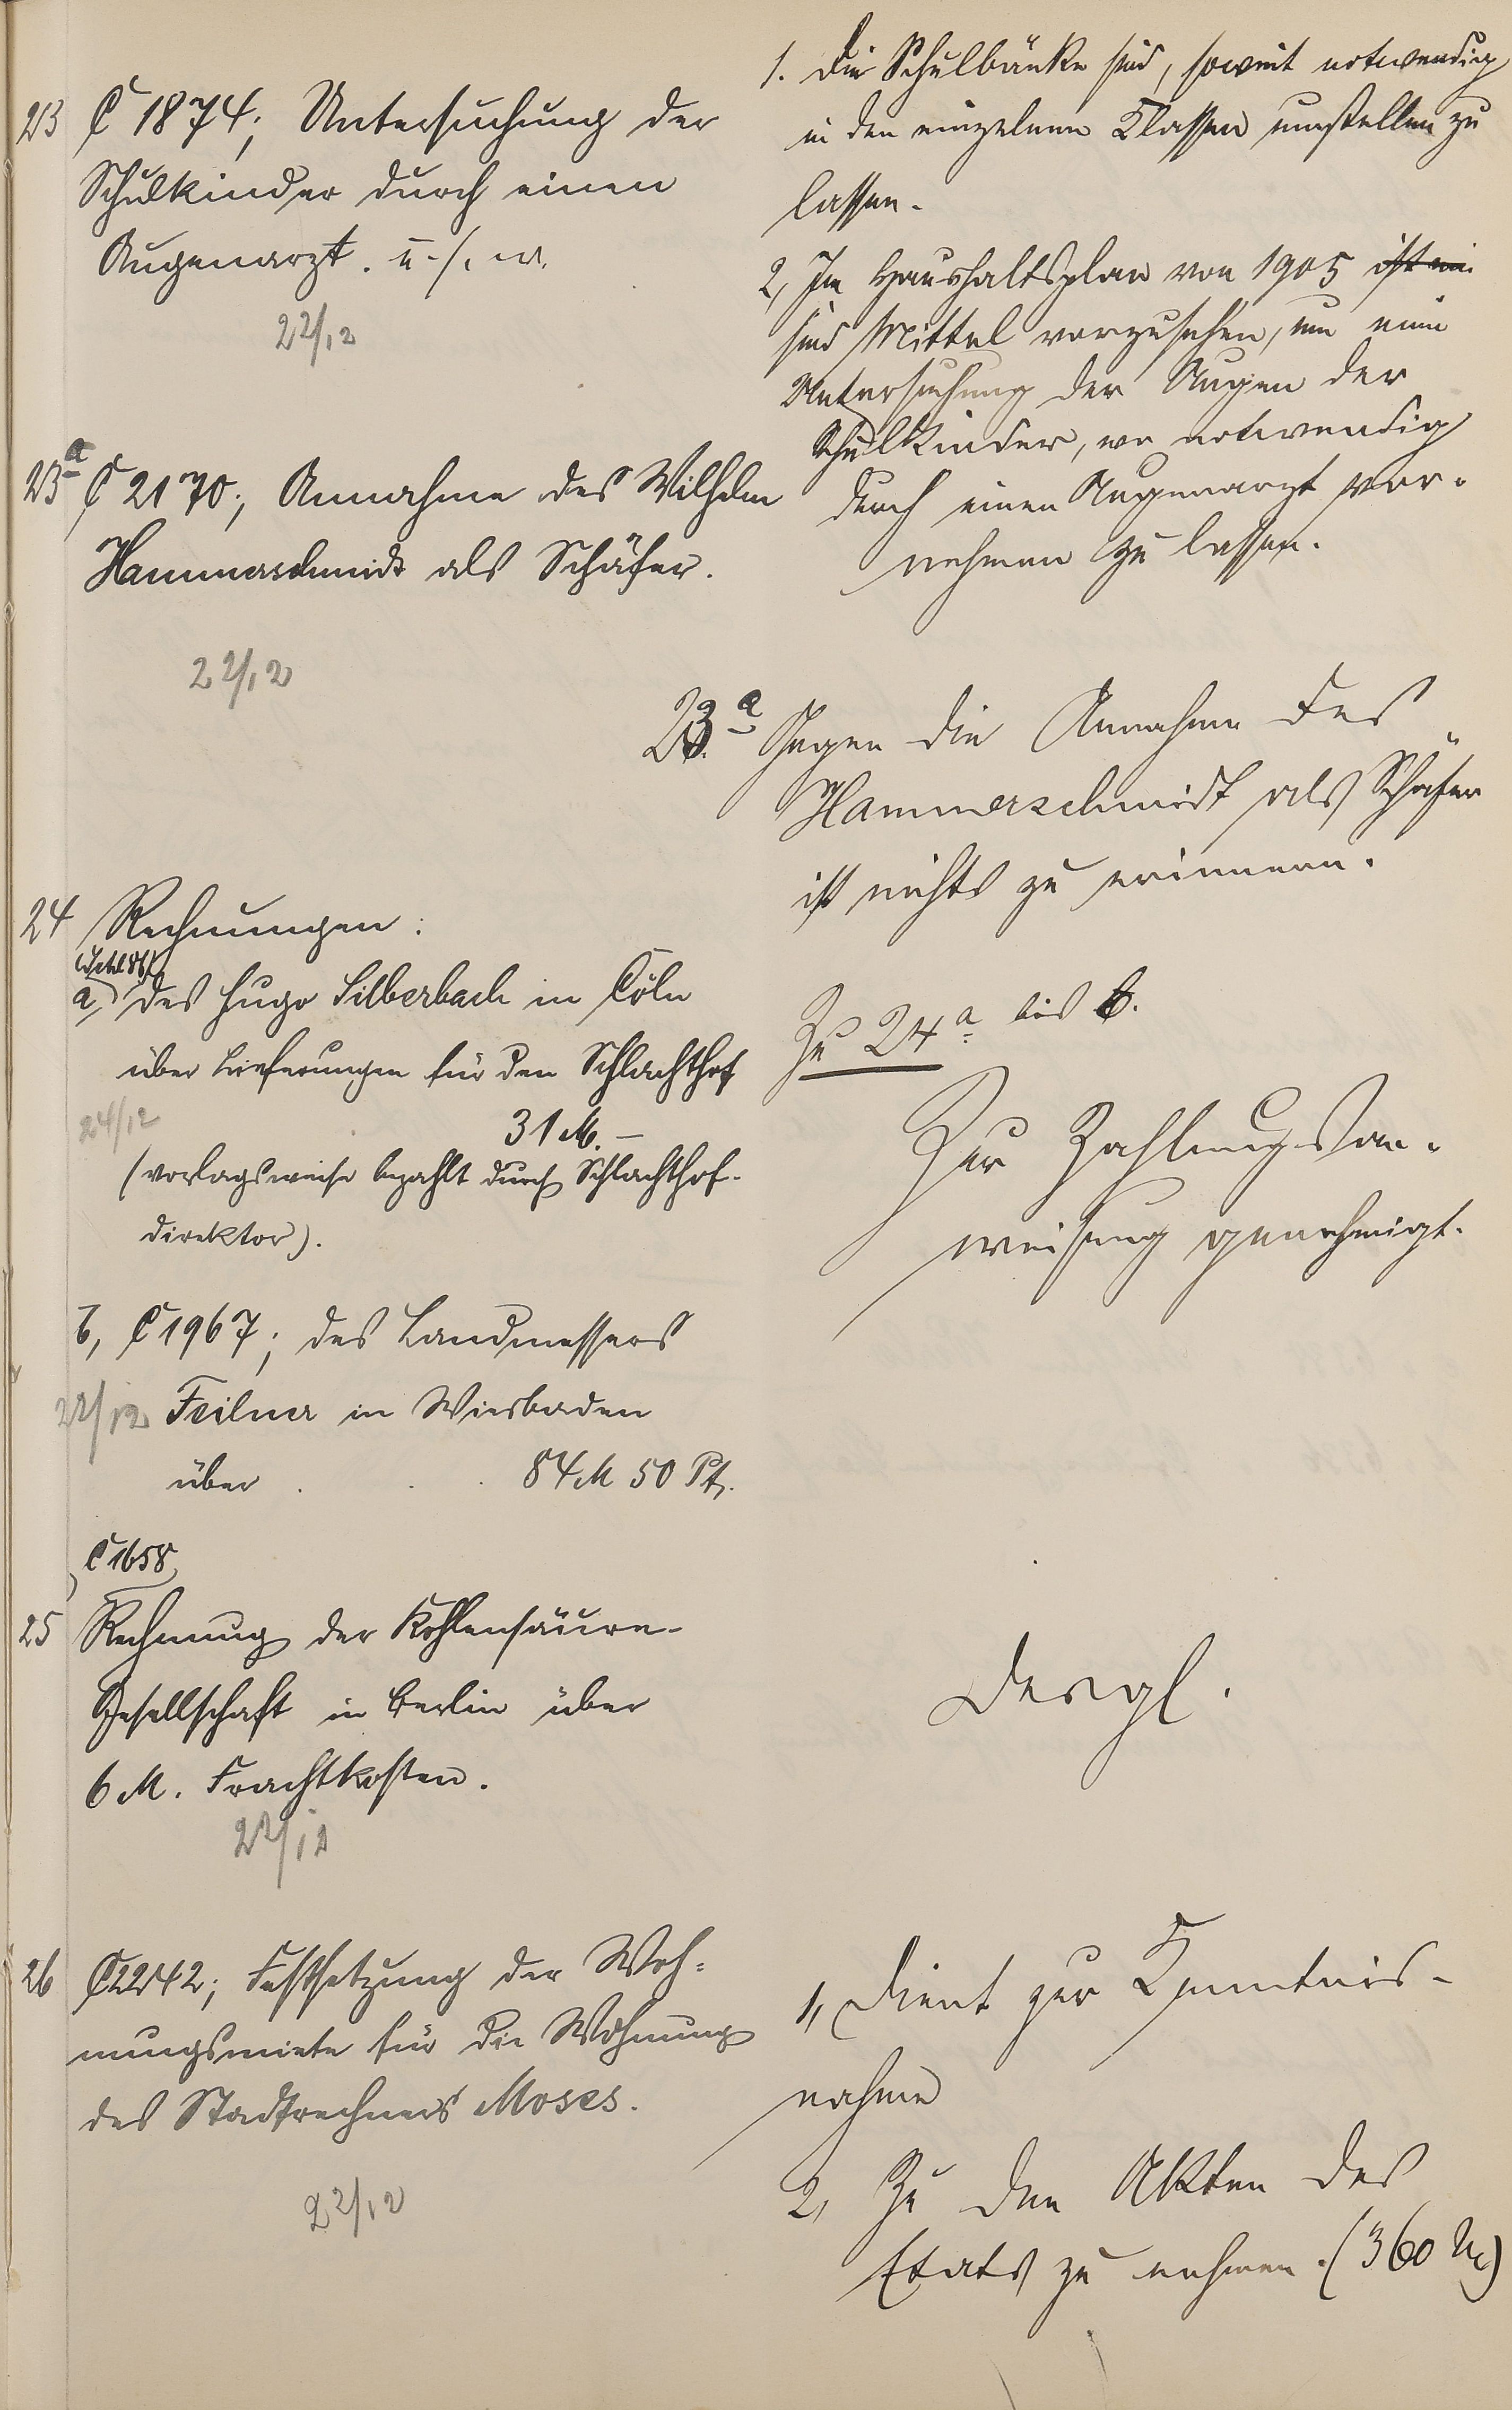 23 C 1874; Untersuchung der
Schulkinder durch einen
Augenarzt. u. s. w.
22/12
1. Die Schulbänke sind, soweit notwendig
in den einzelnen Klassen umstellen zu
lassen.
2, Im Haushaltsplan von 1905 ist ein
sind Mittel vorzusehen, um eine
Untersuchung der Augen der
Schulkinder, wo notwendig
durch einen Augenarzt vor-
nehmen zu lassen.
23a C 2170; Annahme des Wilhelm
Hammerschmidt als Schäfer.
22/12
23.a Gegen die Annahme des
Hammerschmidt als Schäfer
ist nichts zu erinnern.
24 Rechnungen:
a, des Hugo Silberbach in Cöln
über Lieferungen für den Schlachthof
24/12
31 M. –
(vorlagsweise bezahlt durch Schlachthof-
direktor).
b, C 1967; des Landmessers
22/12 Feilner in Wiesbaden
über . . . 84 M 50 Pf.
Zu 24a bis b.
Zur Zahlungsan-
weisung genehmigt.
C 1658
25 Rechnung der Kohlensäure-
Gesellschaft in Berlin über
6 M. Frachtkosten.
22/12
Desgl.
26 C 2242; Festsetzung der Woh-
nungsmiete für die Wohnung
des Stadtrechners Moses.
22/12
1, Dient zur Kenntnis-
nahme
2, Zu den Akten des
Etats zu nehmen. (360 M)